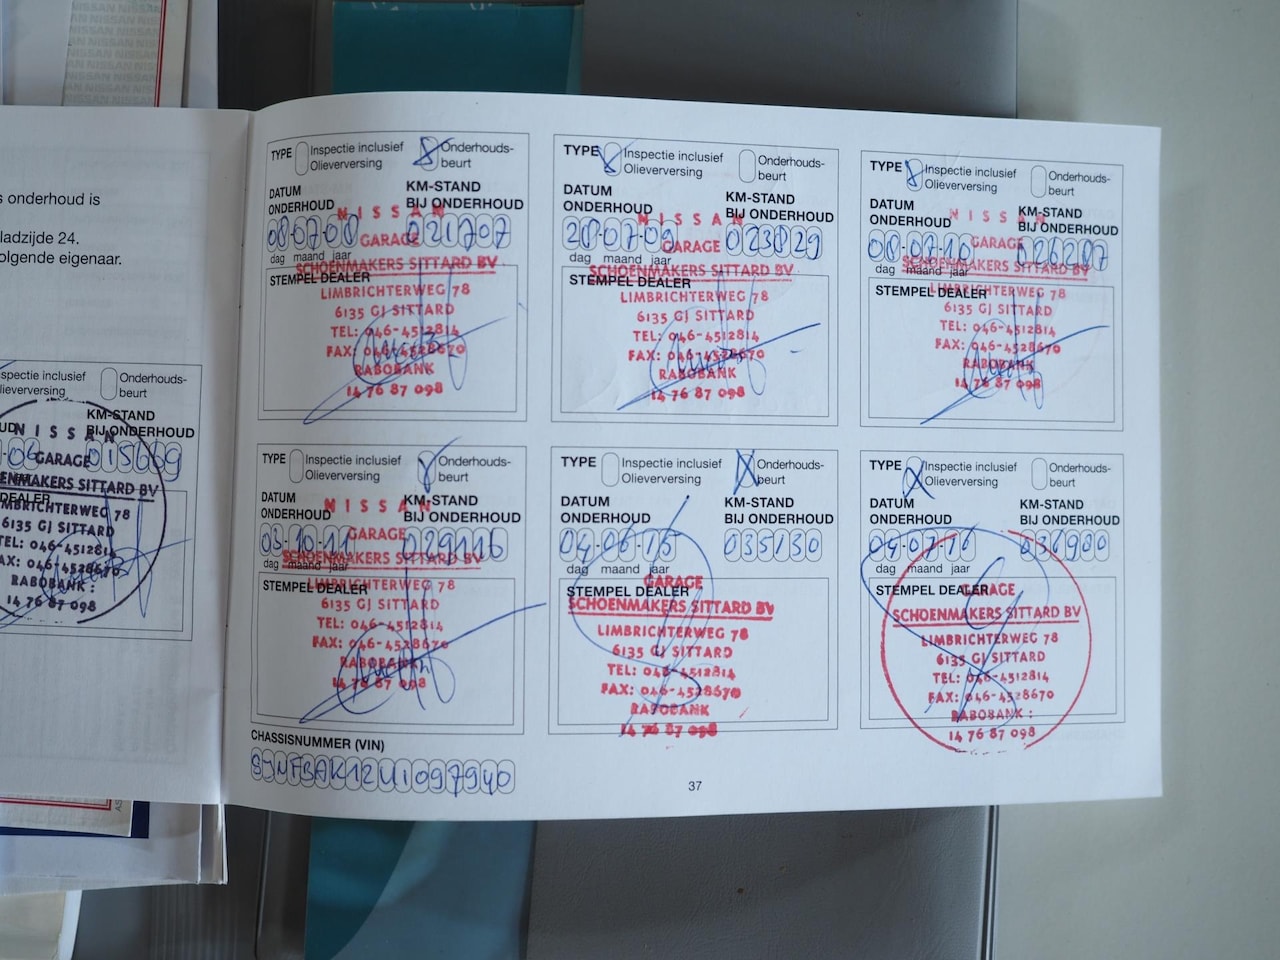 NISSAN NISSAN NISSAN
s onderhoud is
ladzijde 24.
olgende eigenaar.
spectie inclusief
lieverversing
Onderhouds-
beurt
KM-STAND
BIJ ONDERHOUD
015669
DEALER
NISSAN
GARAGE
SCHOENMAKERS SITTARD BV
LIMBRICHTERWEG 78
6135 GJ SITTARD
TEL: 046-4512814
FAX: 046-4528670
RABOBANK :
14 76 87 098
TYPE Inspectie inclusief Olieverversing
Onderhouds-
beurt
DATUM
ONDERHOUD
KM-STAND
BIJ ONDERHOUD
08-07-08 021707
dag maand jaar
STEMPEL DEALER
NISSAN
GARAGE
SCHOENMAKERS SITTARD BV
LIMBRICHTERWEG 78
6135 GJ SITTARD
TEL: 046-4512814
FAX: 046-4528670
RABOBANK
14 76 87 098
TYPE Inspectie inclusief Olieverversing
Onderhouds-
beurt
DATUM
ONDERHOUD
KM-STAND
BIJ ONDERHOUD
28-07-09 023829
dag maand jaar
STEMPEL DEALER
NISSAN
GARAGE
SCHOENMAKERS SITTARD BV
LIMBRICHTERWEG 78
6135 GJ SITTARD
TEL: 046-4512814
FAX: 046-4528670
RABOBANK
14 76 87 098
TYPE Inspectie inclusief Olieverversing
Onderhouds-
beurt
DATUM
ONDERHOUD
KM-STAND
BIJ ONDERHOUD
08-07-10 026287
dag maand jaar
STEMPEL DEALER
NISSAN
GARAGE
SCHOENMAKERS SITTARD BV
LIMBRICHTERWEG 78
6135 GJ SITTARD
TEL: 046-4512814
FAX: 046-4528670
RABOBANK
14 76 87 098
TYPE Inspectie inclusief Olieverversing
Onderhouds-
beurt
DATUM
ONDERHOUD
KM-STAND
BIJ ONDERHOUD
03-10-11 029116
dag maand jaar
STEMPEL DEALER
NISSAN
GARAGE
SCHOENMAKERS SITTARD BV
LIMBRICHTERWEG 78
6135 GJ SITTARD
TEL: 046-4512814
FAX: 046-4528670
RABOBANK
14 76 87 098
TYPE Inspectie inclusief Olieverversing
Onderhouds-
beurt
DATUM
ONDERHOUD
KM-STAND
BIJ ONDERHOUD
04-06-15 035130
dag maand jaar
STEMPEL DEALER
GARAGE
SCHOENMAKERS SITTARD BV
LIMBRICHTERWEG 78
6135 GJ SITTARD
TEL: 046-4512814
FAX: 046-4528670
RABOBANK
14 76 87 098
TYPE Inspectie inclusief Olieverversing
Onderhouds-
beurt
DATUM
ONDERHOUD
KM-STAND
BIJ ONDERHOUD
04-07-16 036900
dag maand jaar
STEMPEL DEALER
GARAGE
SCHOENMAKERS SITTARD BV
LIMBRICHTERWEG 78
6135 GJ SITTARD
TEL: 046-4512814
FAX: 046-4528670
RABOBANK :
14 76 87 098
CHASSISNUMMER (VIN)
SJNFBAK12U1097940
37